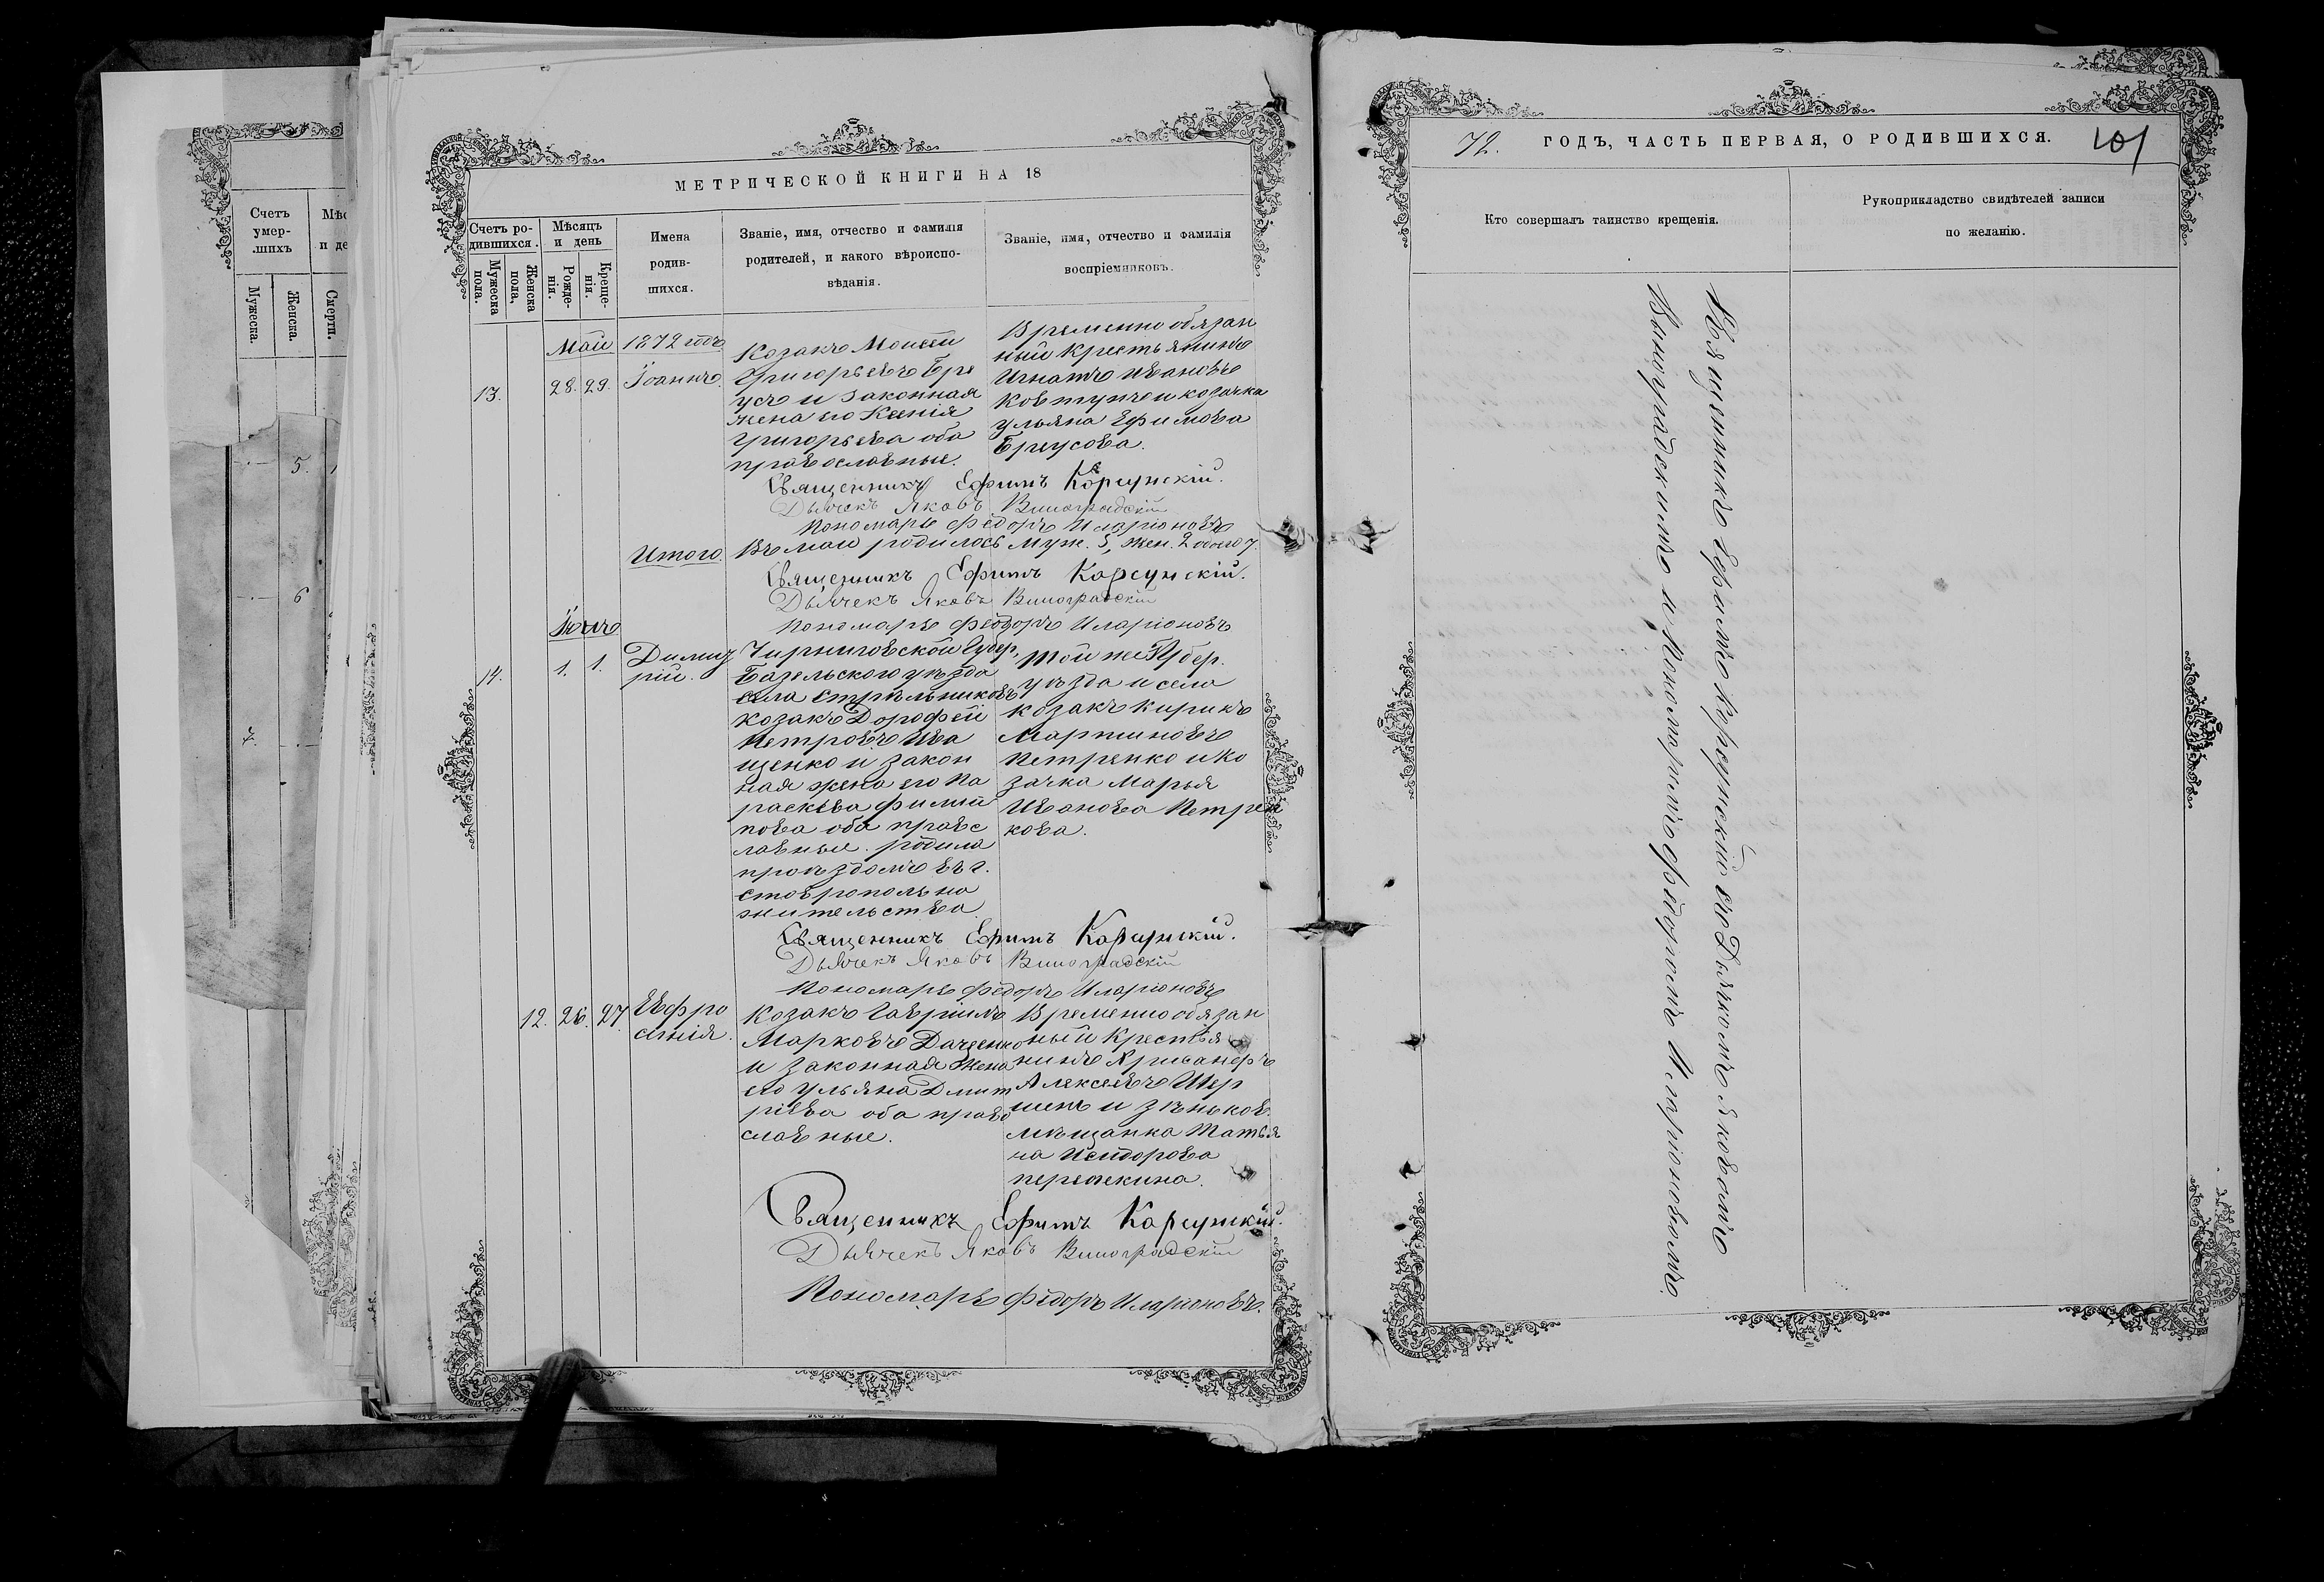 Счетъ
умер-
шихъ
Мужеска.
Женска.
Смерти.
5.
6
7.
МЕТРИЧЕСКОЙ КНИГИ НА 18
Счетъ ро-
дившихся.
Мужеска
пола.
Женска
пола,
Мѣсяцъ
и день
Рожде-
нія.
Креще-
нія.
Имена
родив-
шихся.
Званіе, имя, отчество и фамилія
родителей, и какого вѣроиспо-
вѣданія.
Званіе, имя, отчество и фамилія
воспріемниковъ.
Май 1872 года
13. 28. 29. Іоаннъ.
Козакъ Моисей
Григорьевъ Бре
усъ и законная
жена его Ксенія
Григорьева оба
православные.
Временно обязан
ный крестьянинъ
Игнатъ Ивановъ
Ковтунъ и козачка
Ульяна Ефимова
Бреусова.
Священникъ Ефимъ Корсунскій.
Дьячекъ Яковъ Виноградскій
Пономарь Федоръ Иларіоновъ
Итого. Въ маи родилось муж. 5, жен. 2 обоего 7.
Священникъ Ефимъ Корсунскій.
Дьячекъ Яковъ Виноградскій
Пономарь Федоръ Иларіоновъ
Іюнь
14. 1. 1. Димит
рій.
Черниговской Губер.
уѣзда
села Стрѣльниковъ
козакъ Дорофей
Петровъ Ива
щенко и закон
ная жена его Па
раскева Филип
пова оба правос
лавные. родила
проѣздомъ въ г.
Ставрополь на
жительства
Той же Губер.
уѣзда и села
козакъ Кирикъ
Мартиновъ
Петренко и ко
зачка Марья
Иванова Петрен
кова.
Священникъ Ефимъ Корсунскій.
Дьячекъ Яковъ Виноградскій
Пономарь Федоръ Иларіоновъ
12. 26. 27. Евфро
синія.
Козакъ Гавріилъ
Марковъ Даценко
и законная жена
его Ульяна Дмит
ріева оба право
славные.
Временно обязан
ный крестья
нинъ Хрисанфъ
Алексѣевъ Шер
шенъ и зѣньков.
мѣщанка Татья
на Исидорова
Перепекина.
Священникъ Ефимъ Корсунскій.
Дьячекъ Яковъ Виноградскій
Пономарь Федоръ Иларіоновъ.
72. ГОДЪ, ЧАСТЬ ПЕРВАЯ, О РОДИВШИХСЯ. 101
Кто совершалъ таинство крещенія.
Рукоприкладство свидѣтелей записи
по желанію.
Священникъ Ефимъ Корсунскій съ Дьячкомъ Яковомъ
Виноградскимъ и Пономаремъ Федоромъ Иларіоновымъ.